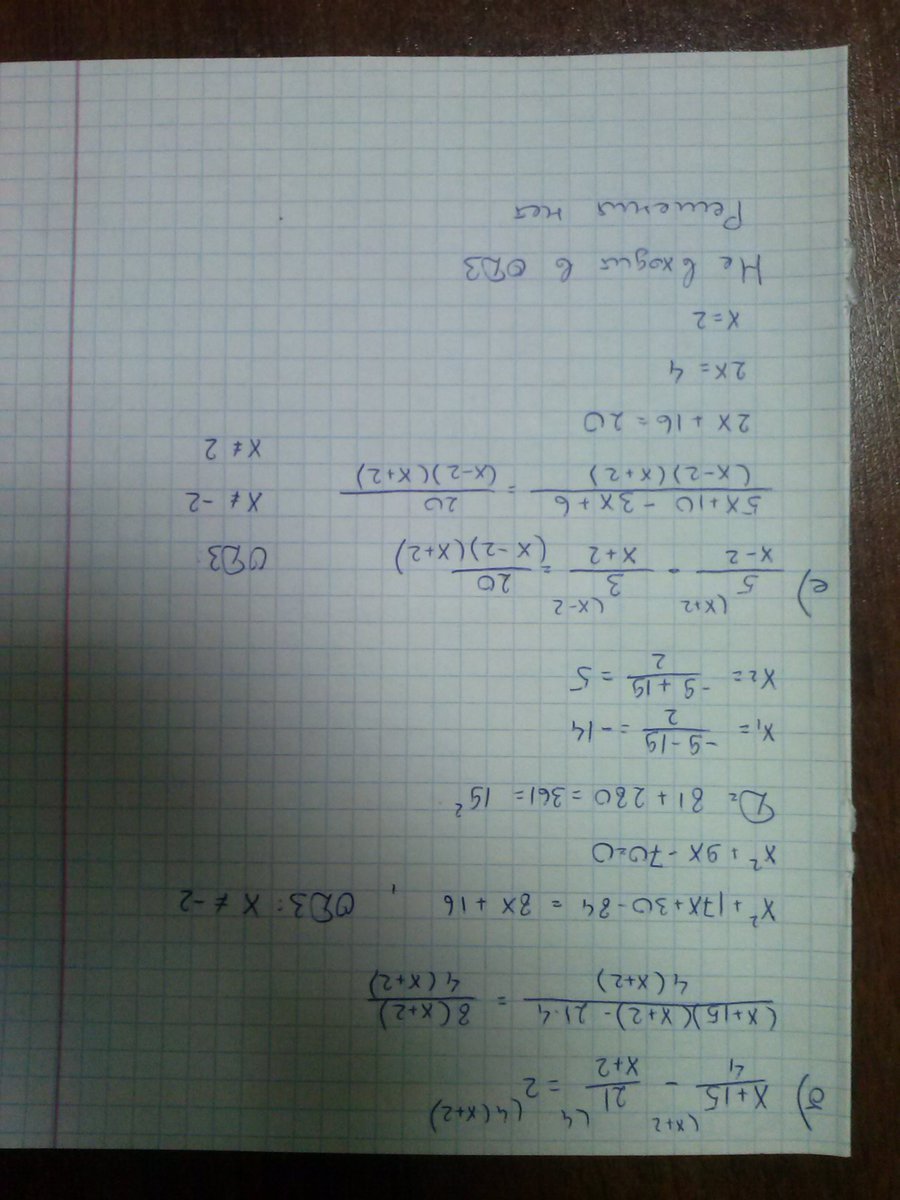 б) (x+2 (4 (4(x+2)
x+15/4 - 21/x+2 = 2
(x+15)(x+2) - 21·4/4(x+2) = 8(x+2)/4(x+2)
x² + 17x+30-84 = 8x + 16 , ОДЗ: x ≠ -2
x² + 9x - 70=0
D= 81 + 280 = 361 = 19²
x₁ = -9-19/2 = -14
x₂ = -9+19/2 = 5
е) (x+2 (x-2
5/x-2 - 3/x+2 = 20/(x-2)(x+2) ОДЗ:
5x+10 - 3x+6/(x-2)(x+2) = 20/(x-2)(x+2) x ≠ -2
x ≠ 2
2x + 16 = 20
2x = 4
x = 2
Не входит в ОДЗ
Решения нет